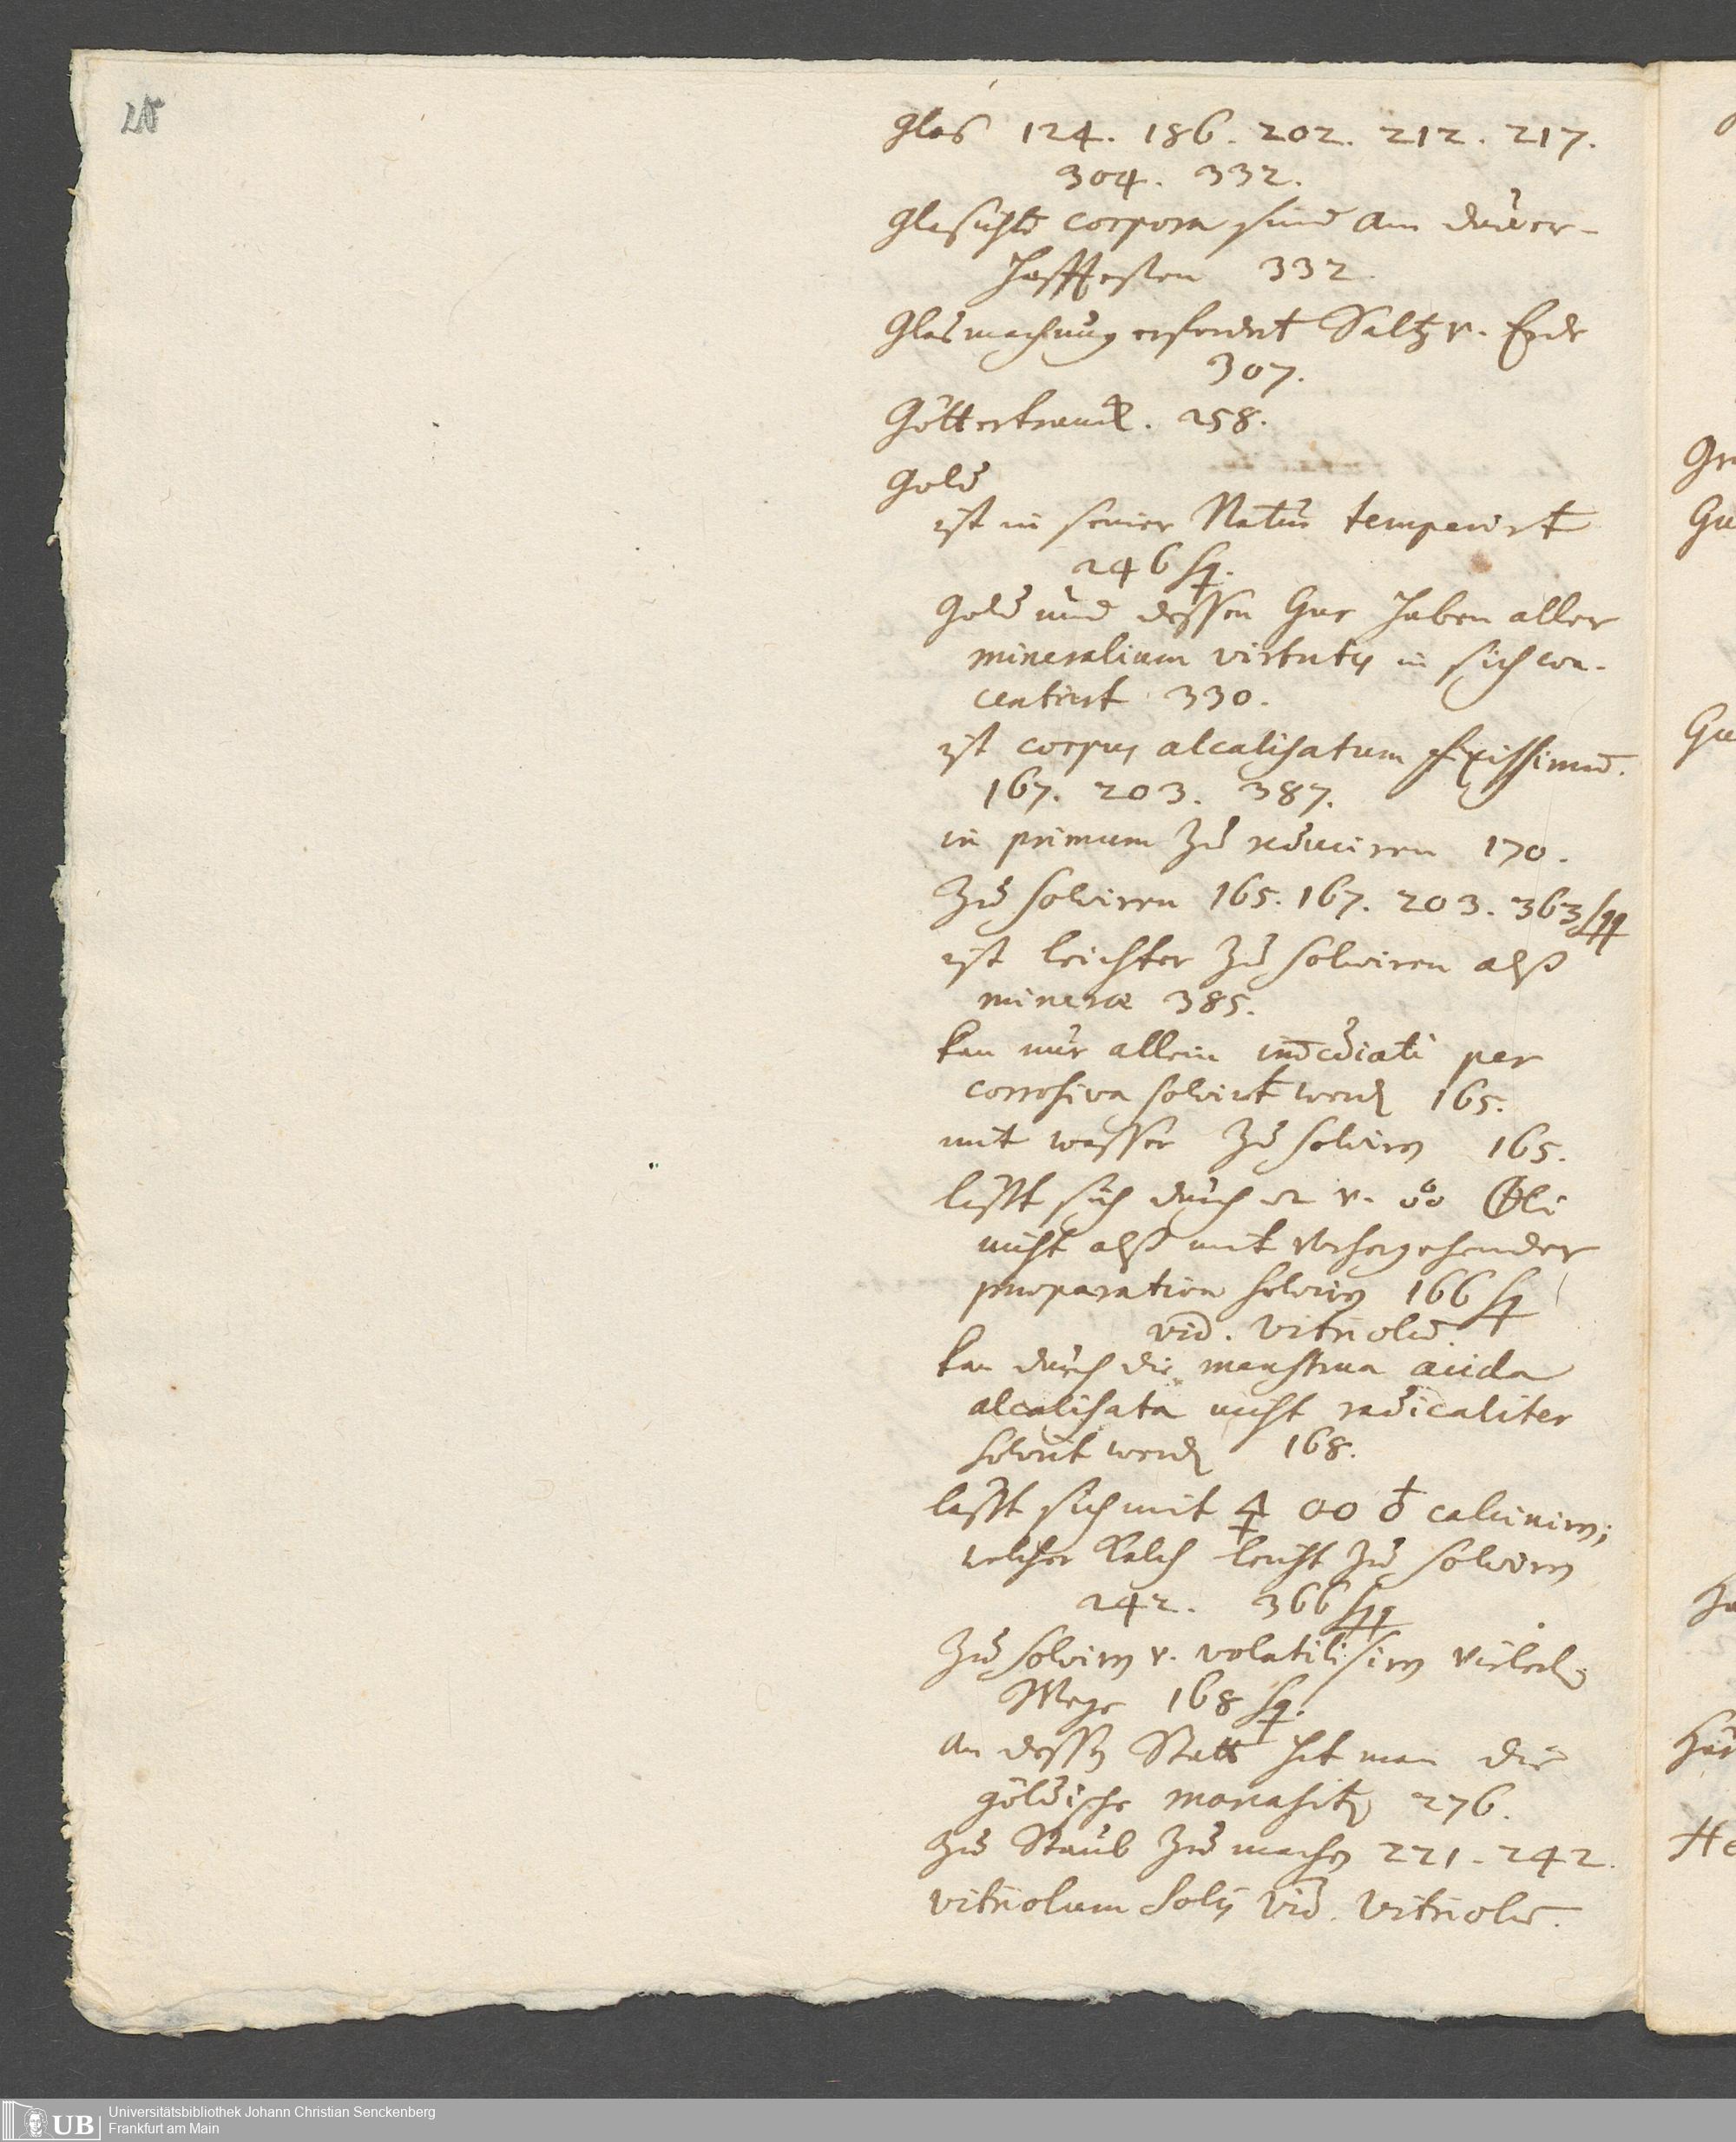 28
Glas 124. 186. 202. 212. 217.
304. 332.
Glasichte corpora sind am dauer-
hafftesten 332.
Glasmachung erfordert Saltz v. Erde
307.
Göttertranck. 258.
Gold
ist in seiner Natur temperirt
246 sq.
Gold und dessen Gur haben aller
mineralium virtutes in sich con-
centrirt 330.
ist corpus alcalisatum fixissimum.
167. 203. 387.
in primum zu reduciren 170.
Zu solviren 165. 167. 203. 363 sqq
ist leichter zu solviren alß
minerae 385.
kan nur allein immediatè per
corrosiva solvirt werden 165.
mit wasser zu solviren 165.
lässt sich durch v.
nicht alß mit vorhergehender
praeparation solviren 166 sq
vid. Vitriolum.
kan durch die menstrua acida
alcalisata nicht radicaliter
solvirt werden 168.
lässt sich mit 🜍 ♁ calciniren;
welcher Kalch leicht zu solviren
242. 366 sqq
Zu solviren v. volatilisiren
Wege 168 sq.
an dessen Statt hat man die
göldische marcasiten 276.
zu Staub zu machen 221. 242.
vitriolum Solis vid. Vitriolum.
Gr
Gu
Gu
Ha
Här
He
UB
Universitätsbibliothek Johann Christian Senckenberg
Frankfurt am Main